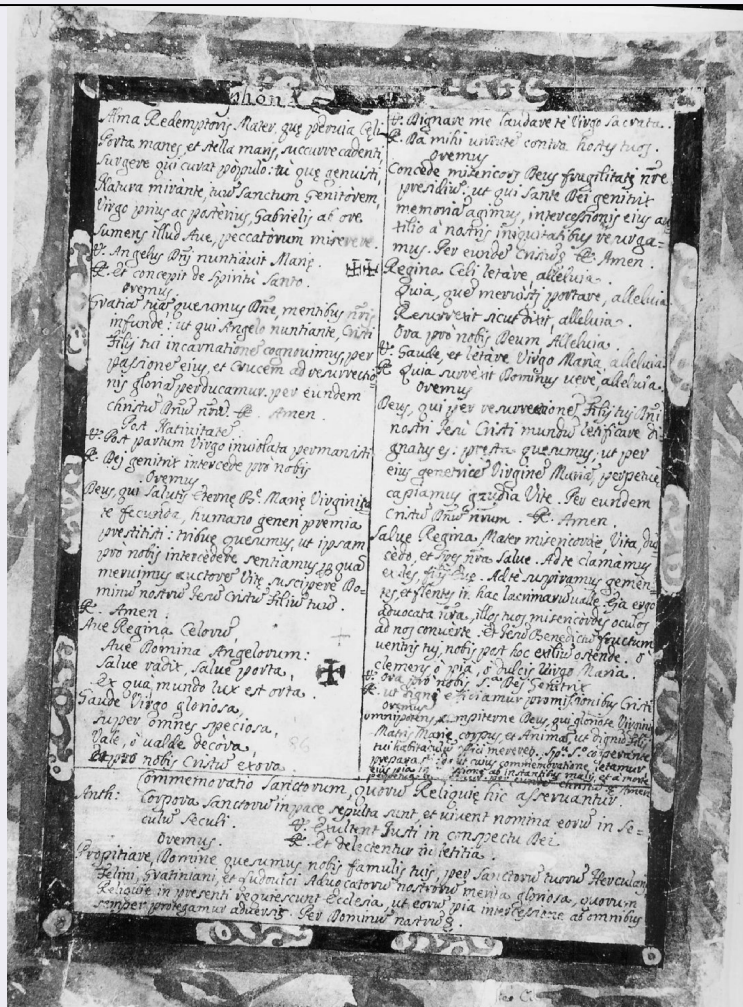 phona 1636
Alma Redemptoris Mater, quę pervia Celi
Porta manes, et stella maris, succurre cadenti,
Surgere qui curat populo: tu quę genuisti,
Natura mirante, tuū Sanctum Genitorem,
Virgo prius ac posterius, Gabrielis ab ore
Sumens illud Ave, peccatorum miserere.
℣. Angelus Dñi nuntiavit Marię.
℟. Et concepit de Spiritu Santo.
Oremus.
Gratiā tuā quesumus Dñe, mentibus nr̃is
infunde: ut qui Angelo nuntiante, Cristi
Filij tui incarnationē cognovimus, per
passionē eius, et Crucem ad resurrectio-
nis gloriā perducamur. per eundem
christū Dnū nr̃ū. ℟. Amen.
Post Nativitatē
℣. Post partum Virgo inviolata permansisti
℟. Dei genitrix intercede pro nobis
Oremus
Deus, qui Salutis eternę B.ę Marię Virginita
te fecunda, humano generi premia
prestitisti: tribue quesumus, ut ipsam
pro nobis intercedere sentiamus p quā
meruimus auctorē Vitę suscipere Do-
minū nostrū Jesū Cristū Filiū tuū.
℟. Amen.
Ave Regina Celorū,
Ave Domina Angelorum:
Salve radix, Salve porta,
Ex qua mundo lux est orta.
Gaude Virgo gloriosa,
super omnes speciosa,
Vale, ò valde decora,
Et pro nobis Cristū exora.
86
℣. Dignare me laudare te Virgo sacrata.
℟. Da mihi virtutē contra hostes tuos.
Oremus
Concede misericors Deus fragilitati nr̃e
presidiū, ut qui Sante Dei genitrix
memoriā agimus, intercessionis eius au
xilio à nostris iniquitatibus resurga-
mus. Per eundē Cristū ℟. Amen.
Regina Celi letare, alleluia.
Quia, quē meruisti portare, alleluia
Resurrexit sicut dixit, alleluia.
Ora pro nobis Deum Alleluia.
℣. Gaude, et letare Virgo Maria, alleluia.
℟. Quia surrexit Dominus verè, alleluia.
Oremus
Deus, qui per resurrectionē Filij tui Dni
nostri Jesu Cristi mundū letificare di-
gnatus es: presta quesumus, ut per
eius genetricē Virginē Mariā, perpetuę
capiamus gaudia Vite. Per eundem
Cristū Dnū nr̃um. ℟. Amen.
Salve Regina, Mater misericordię, Vita, dul
cedo, et spes nr̃a Salve. Ad te clamamus
exules, filij Eve. Ad te suspiramus gemen-
tes, et flentes in hac lacrimarū valle. Eja ergo
advocata nr̃a, illos tuos misericordes oculos
ad nos converte. Et Jesū Benedictū fructum
ventris tui, nobis post hoc exiliū ostende. ò
clemens ò pia, ò dulcis Virgo Maria.
℣. Ora pro nobis S.ta Dei Genitrix
℟. ut digni efficiamur promissionibus Cristi.
Oremus
Omnipotens, sempiterne Deus, qui gloriose Virginis
Matris Marię corpus, et Animā, ut dignū Filij
tui habitaculū effici mereret. Spu. S.to cooperante
preparasti: da ut cuius commemoratione letamur
eius pia intercessione ab instantibus malis, et a morte
Cristū Amen
Commemoratio Sanctorum, quorū Reliquię hic asservantur.
Anth: Corpora Sanctorū in pace sepulta sunt, et vivent nomina eorū in se=
culū seculi. ℣. Exultent Justi in conspectu Dei
Oremus. ℟. Et delectentur in letitia.
Propitiare, Domine quesumus nobis famulis tuis, per Sanctorū tuorū Herculani,
Felini, Gratiniani, et Ludovici Advocatorū nostrorū merita gloriosa, quorum
Reliquię in presenti requiescunt Ecclesia, ut eorū pia intercessione ab omnibus
semper protegamur adversis. Per Dominū nostrū